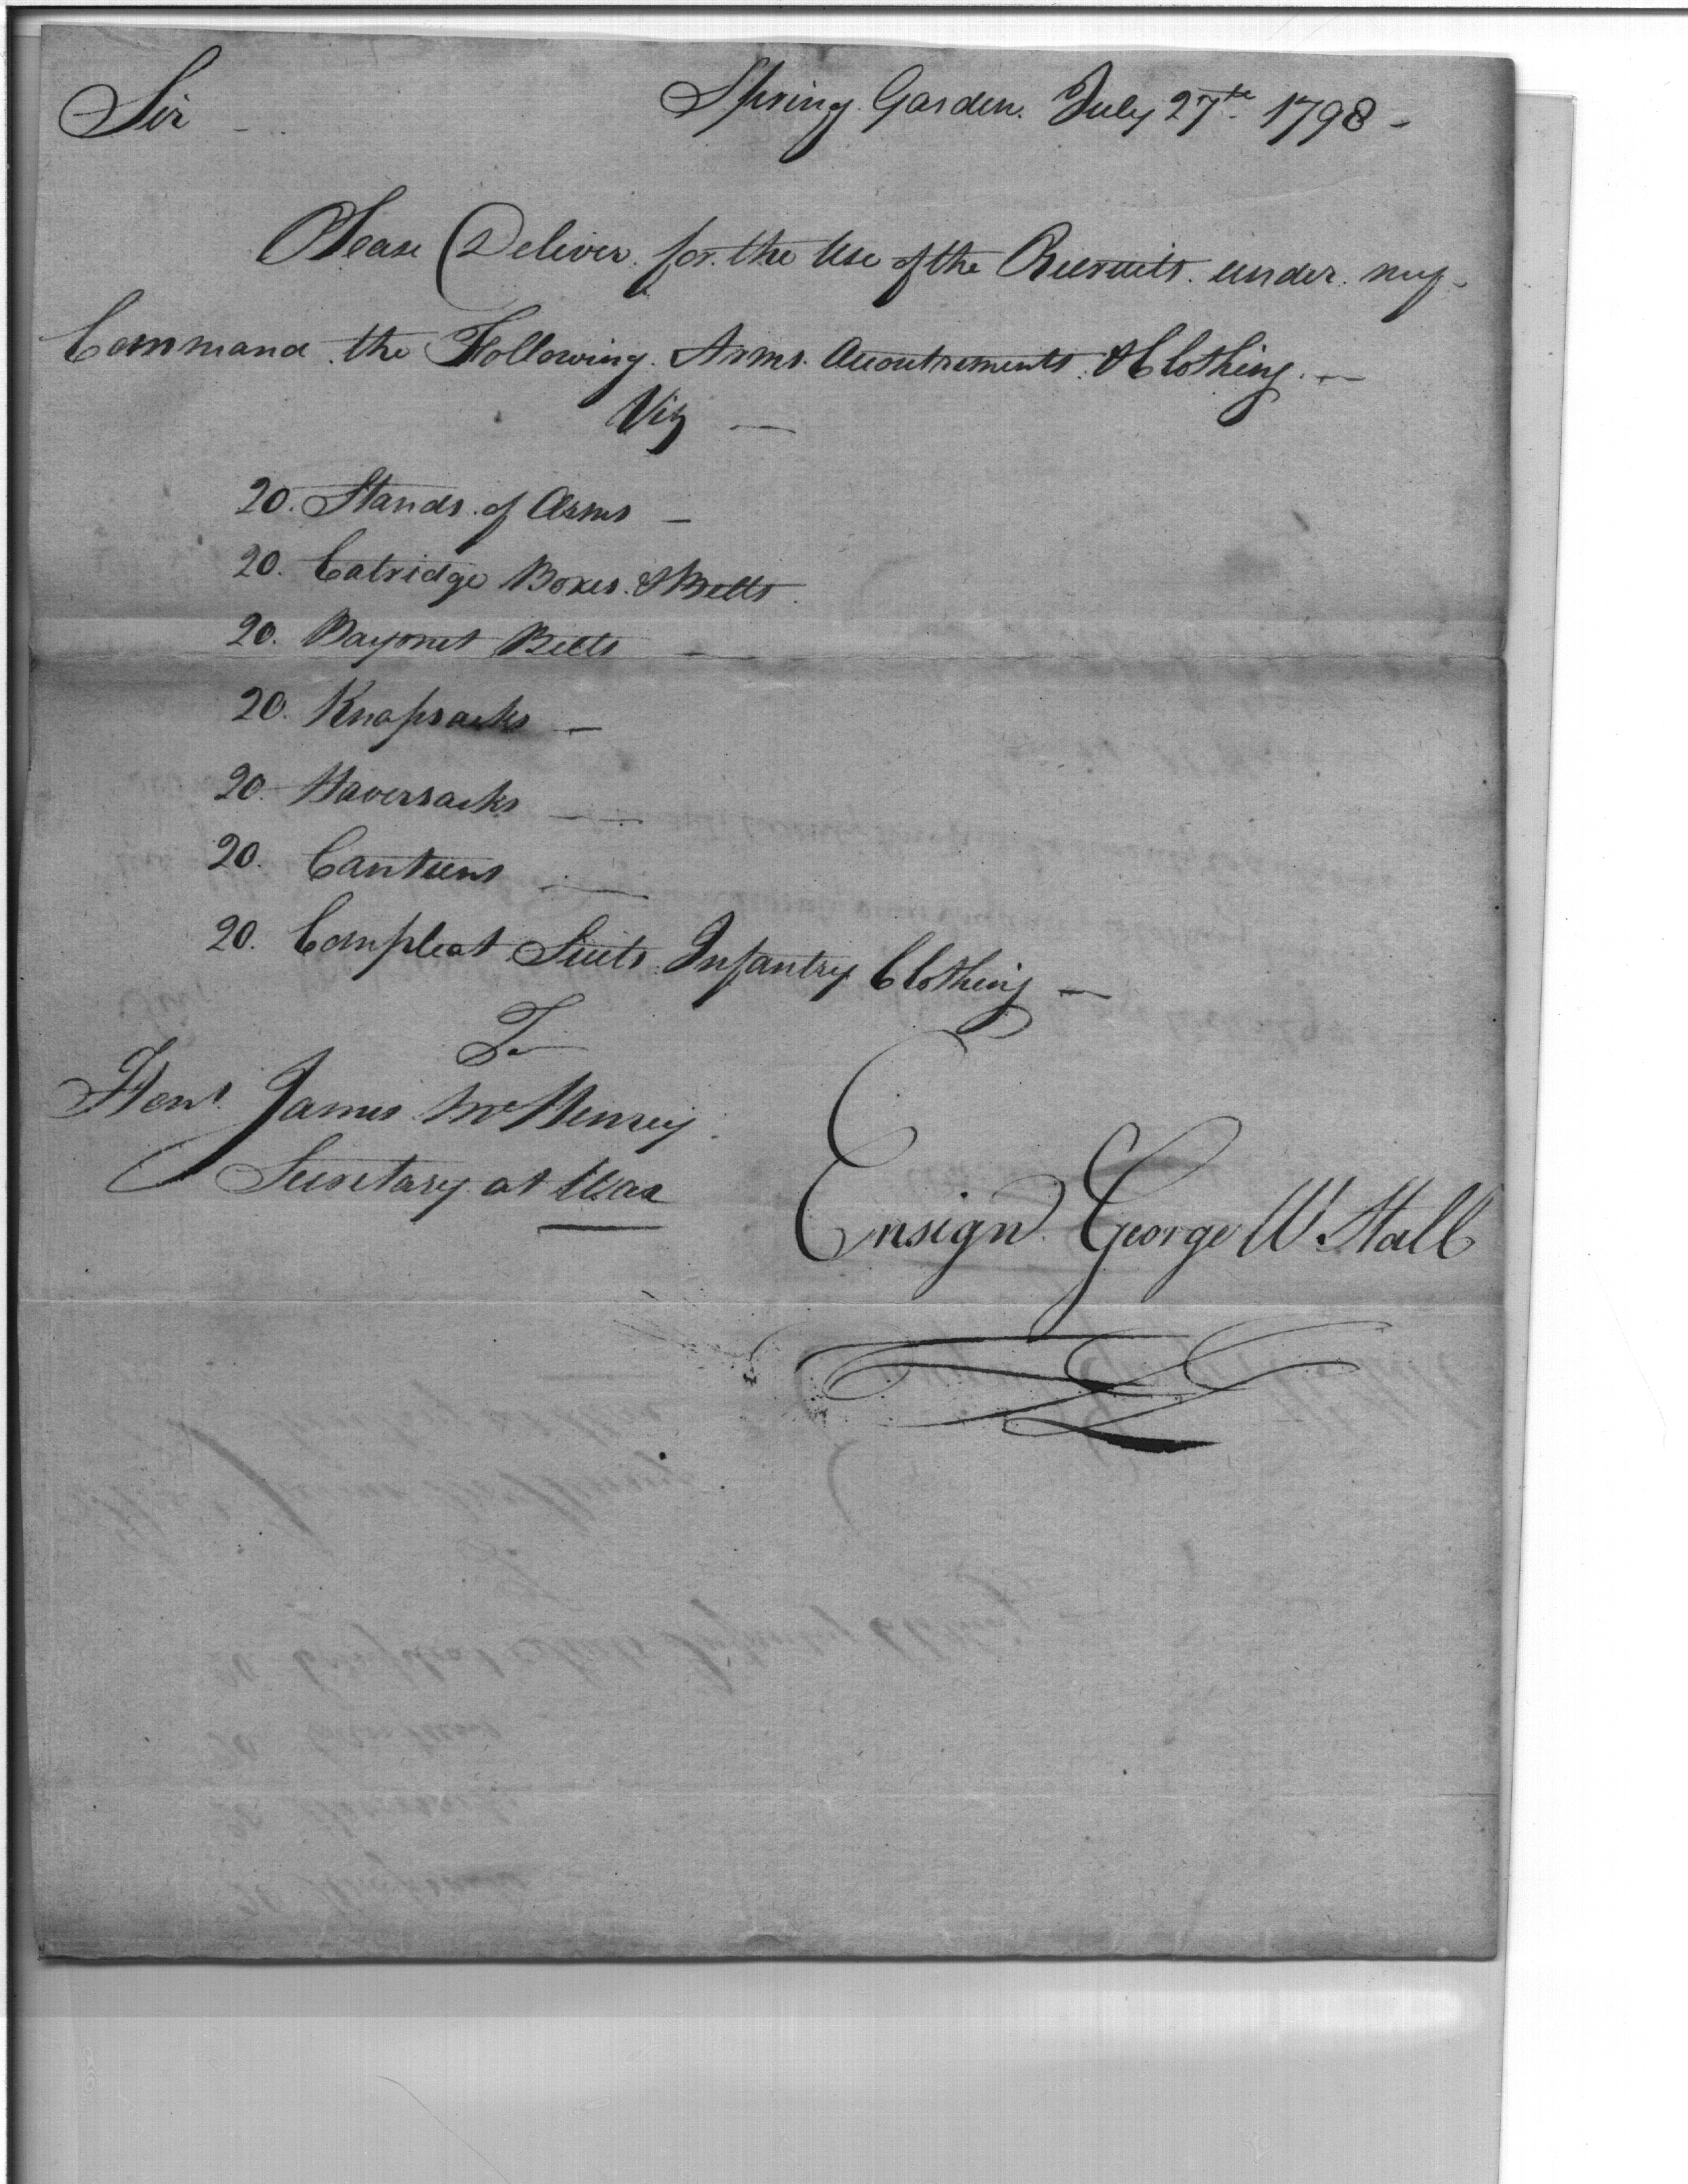 Sir - Spring Garden. July 27th 1798 -
Please Deliver for the Use of the Recruits under my
Command the Following Arms Accoutrements & Clothing. —
Viz —
20. Stands of Arms —
20. Catridge Boxes & Belts
20. Bayonet Belts —
20. Knapsacks —
20. Haversacks —
20. Canteens —
20. Compleat Suits Infantry Clothing —
To
Honl. James McHenry
Secretary at War
Ensign George W Stall